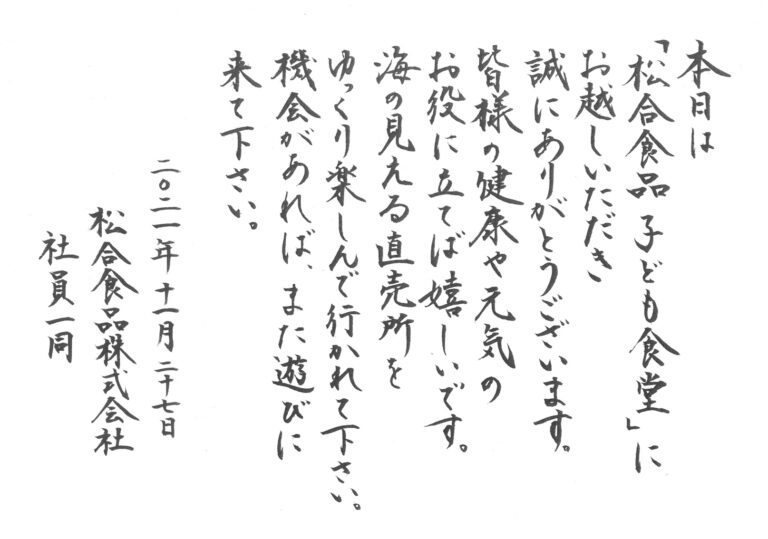 本日は
「松合食品 子ども食堂」に
お越しいただき
誠にありがとうございます。
皆様の健康や元気の
お役に立てば嬉しいです。
海の見える直売所を
ゆっくり楽しんで行かれて下さい。
機会があれば、また遊びに
来て下さい。
二〇二一年 十一月 二十七日
松合食品株式会社
社員一同